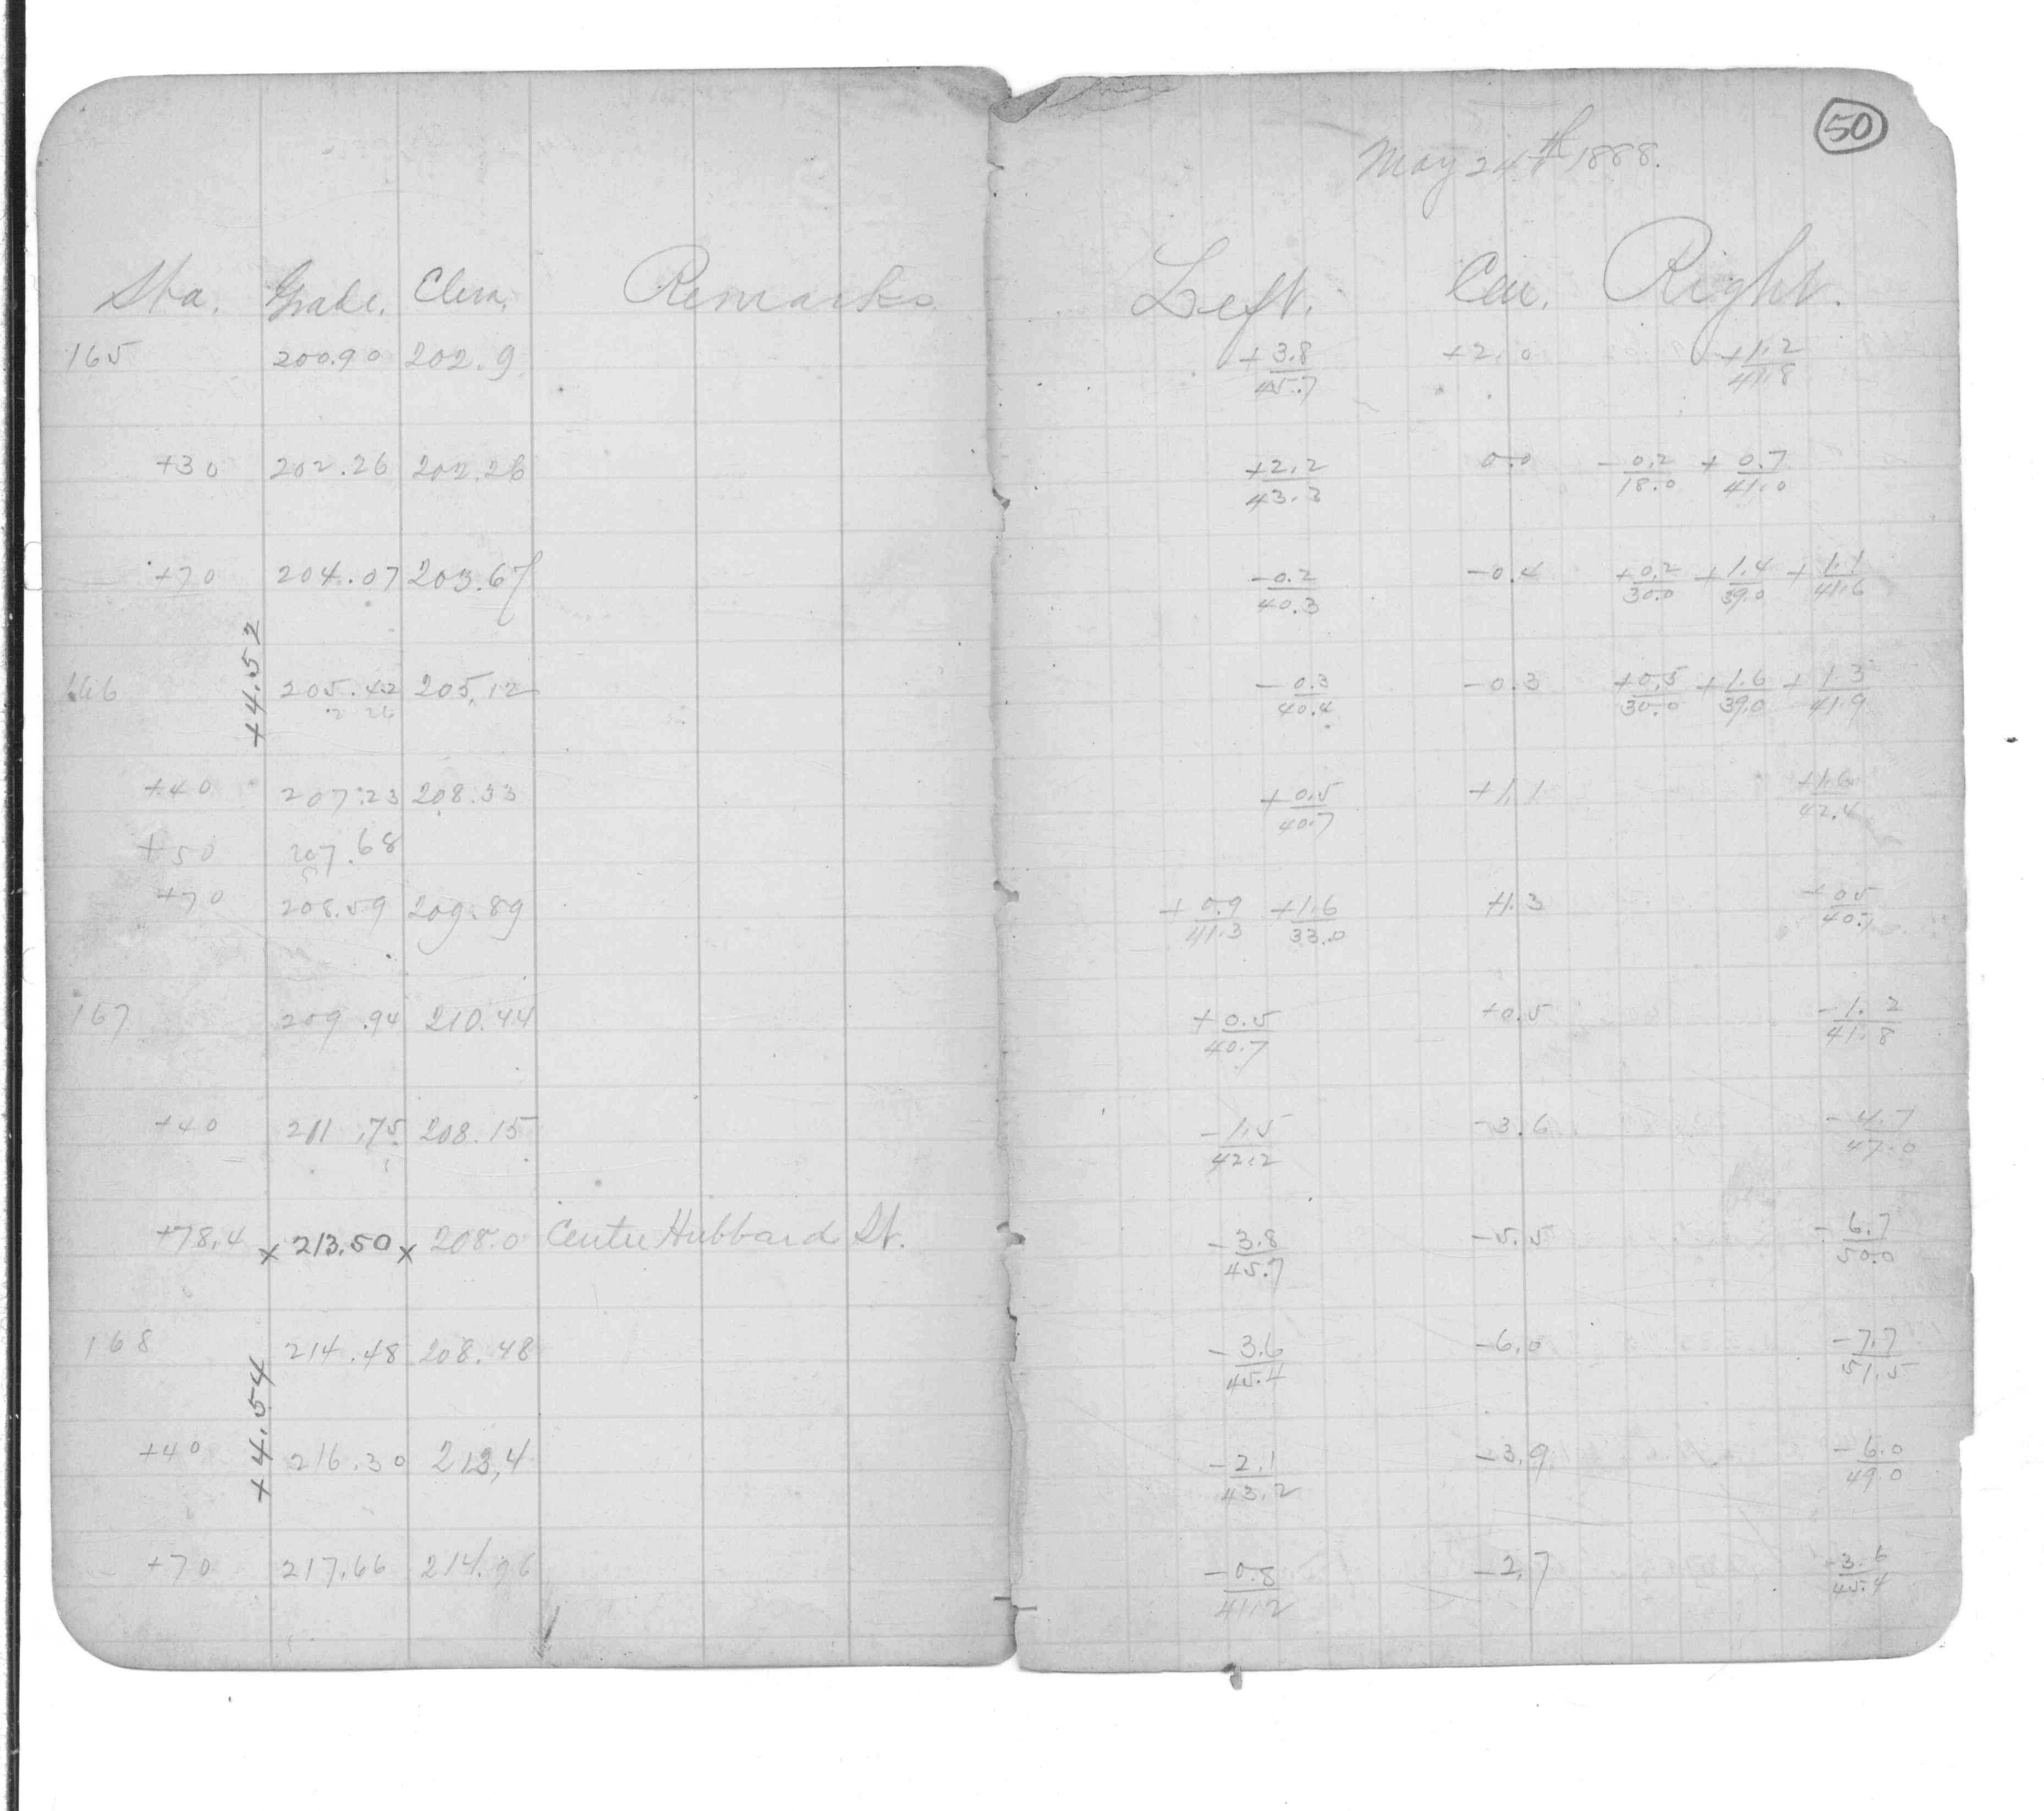 50
May 24th 1888.
Sta. Grade. Elev. Remarks Left. Cen. Right.
165 200.90 202.9 +3.8/45.7 +2.0 +1.2/41.8
+30 202.26 202.26 +2.2/43.3 0.0 -0.2/18.0 +0.7/41.0
+70 204.07 203.67 -0.2/40.3 -0.4 +0.2/30.0 +1.4/39.0 +1.1/41.6
+4.52
166 205.42 205.12 -0.3/40.4 -0.3 +0.5/30.0 +1.6/39.0 +1.3/41.9
+40 207.23 208.33 +0.5/40.7 +1.1 +1.6/42.4
+50 207.68
+70 208.59 209.89 +0.9/41.3 +1.6/33.0 +1.3 +0.5/40.7
167 209.94 210.44 +0.5/40.7 +0.5 -1.2/41.8
+40 211.75 208.15 -1.5/42.2 -3.6 -4.7/47.0
+78.4 x 213.50 x 208.0 Center Hubbard St. -3.8/45.7 -5.5 -6.7/50.0
168 214.48 208.48 -3.6/45.4 -6.0 -7.7/51.5
+4.54
+40 216.30 212.4 -2.1/43.2 -3.9 -6.0/49.0
+70 217.66 214.96 -0.8/41.2 -2.7 -3.6/45.4